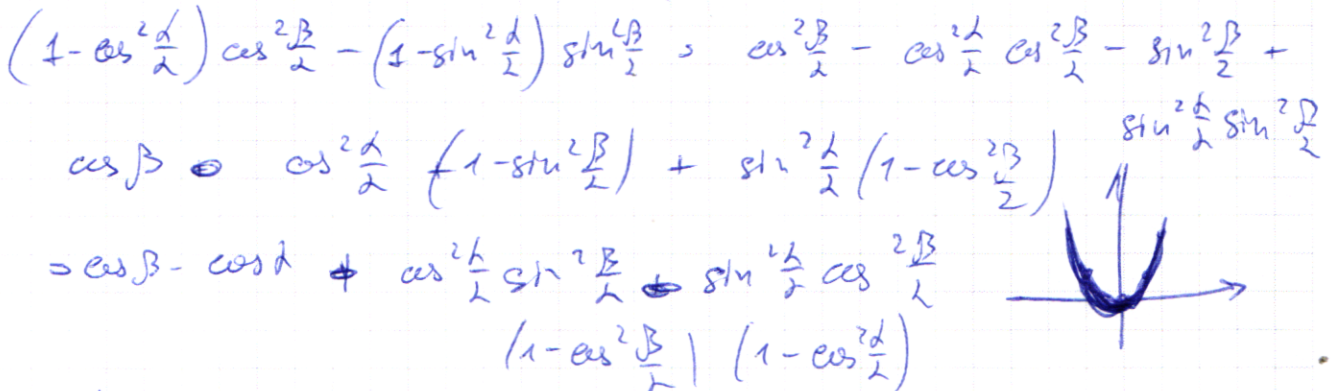 (1-cos²α/2) cos²β/2 - (1-sin²α/2) sin²β/2 = cos²β/2 - cos²α/2 cos²β/2 - sin²β/2 +
sin²α/2 sin²β/2
cosβ - cos²α/2 (1-sin²β/2) + sin²α/2 (1-cos²β/2)
= cosβ - cosα + cos²α/2 sin²β/2 - sin²α/2 cos²β/2
(1-cos²β/2) (1-cos²α/2)